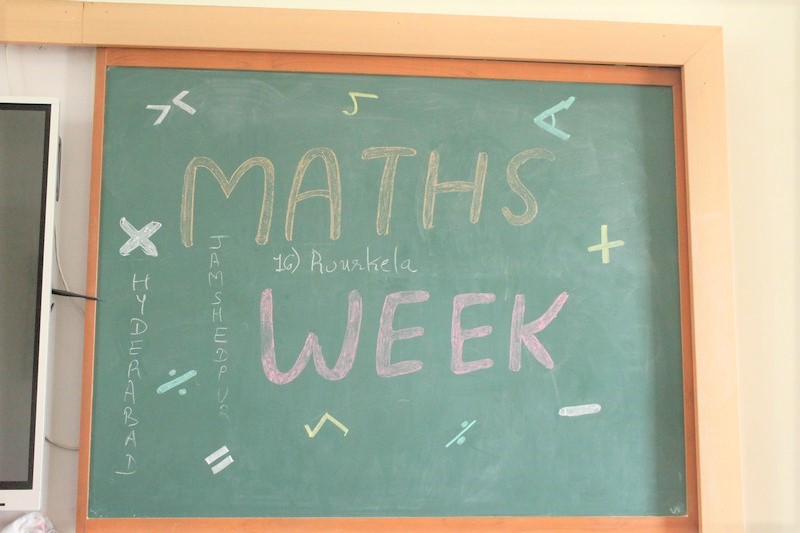 MATHS
16) Rourkela
WEEK
HYDERABAD
JAMSHEDPUR